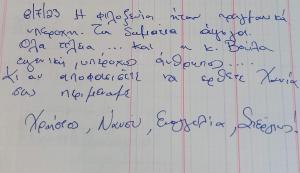 8/7/23 Η φιλοξενία ήταν πραγματικά
υπέροχη. Τα δωμάτια άψογα.
Όλα τέλεια,... και η κ. Βούλα
ευγενική, υπέροχος άνθρωπος....
Κι αν αποφασίσετε να έρθετε Χανιά
σας περιμένουμε
Χρήστος, Νανσυ, Ευαγγελία, Στέργιος!